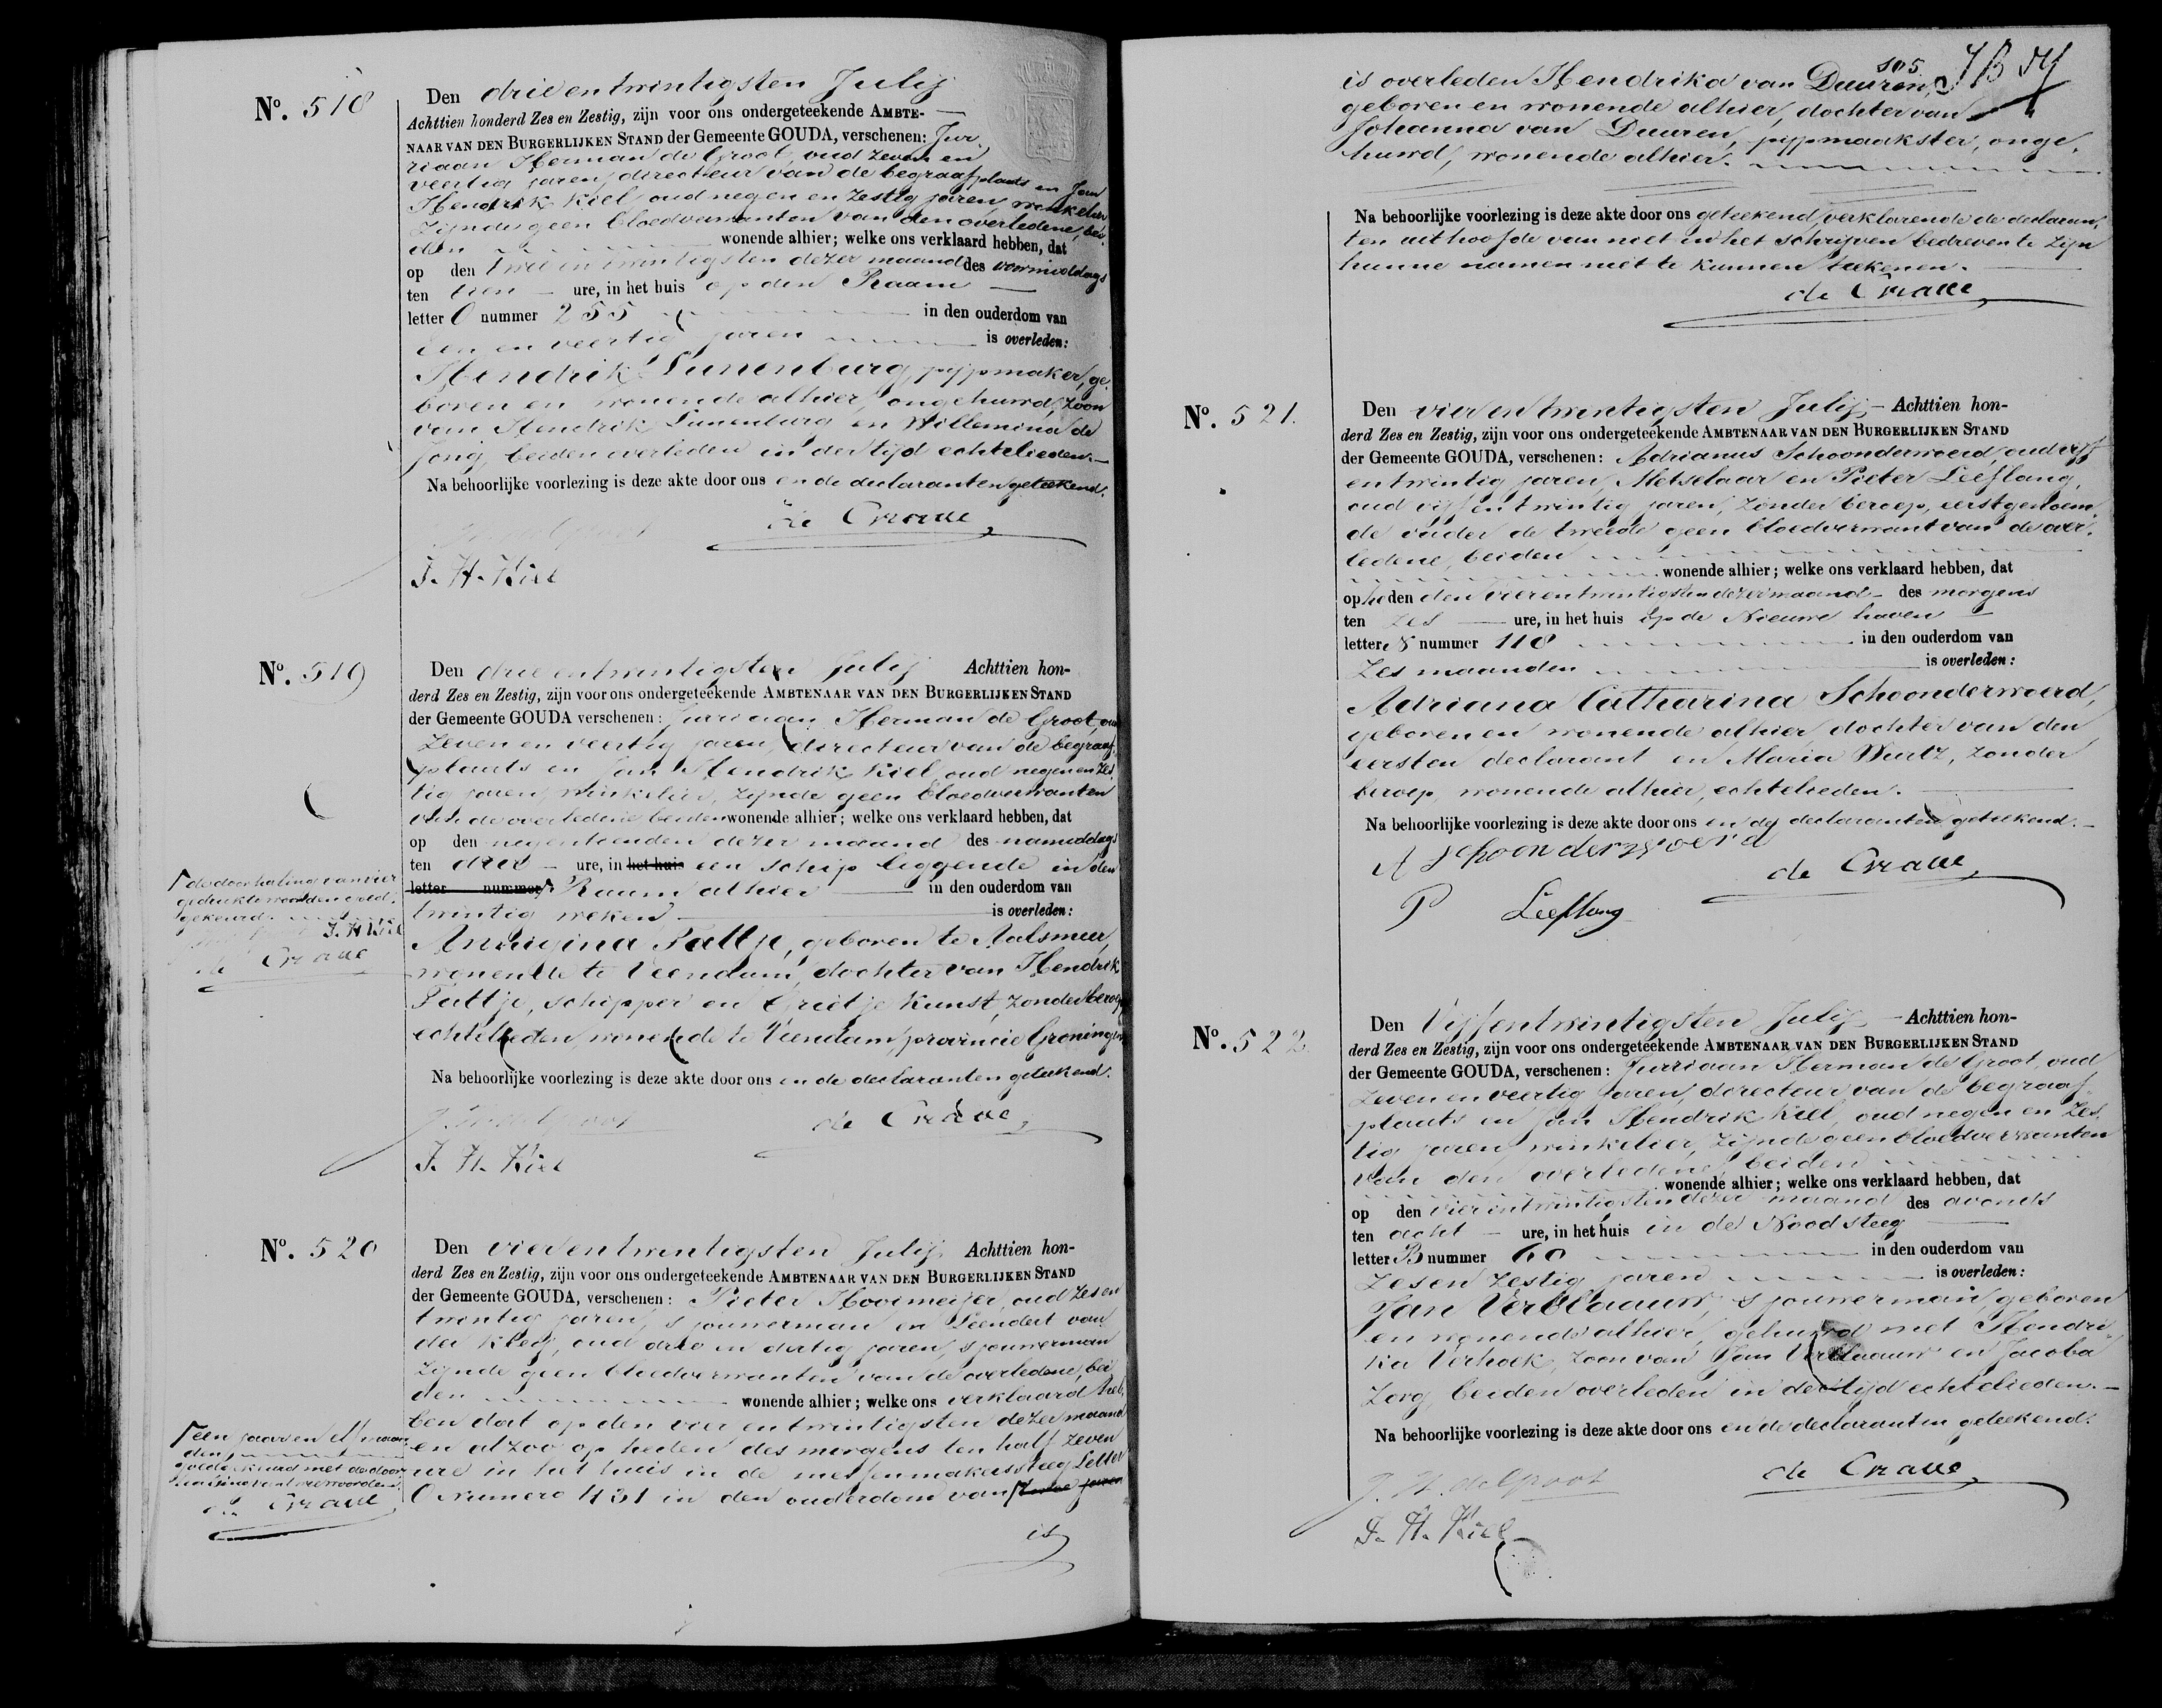 No. 518
Den drie en twintigsten Julij
Achttien honderd Zes en Zestig, zijn voor ons ondergeteekende AMBTE-
NAAR VAN DEN BURGERLIJKEN STAND der Gemeente GOUDA, verschenen: Jur
riaan Herman de Groot, oud zeven en
veertig jaren, directeur van de begraafplaats en Jan
Hendrik Kiel, oud negen en zestig jaren, winkelier
zijnde geen bloedverwanten van den overledene, bei
den wonende alhier; welke ons verklaard hebben, dat
op den twee en twintigsten dezer maand des voormiddags
ten tien ure, in het huis op den Raam
letter O nummer 255 in den ouderdom van
een en veertig jaren is overleden:
Hendrik Lunenburg, pijpmaker, ge
boren en wonende alhier, ongehuwd, zoon
van Hendrik Lunenburg en Willemina de
Jong, beiden overleden in der tijd echtelieden.
Na behoorlijke voorlezing is deze akte door ons en de declaranten geteekend.
de Crave
J. H. Kiel
No. 519
Den drie entwintigsten Julij Achttien hon-
derd Zes en Zestig, zijn voor ons ondergeteekende AMBTENAAR VAN DEN BURGERLIJKEN STAND
der Gemeente GOUDA verschenen: Jurriaan Herman de Groot, oud
zeven en veertig jaren, directeur van de begraaf
plaats en Jan Hendrik Kiel, oud negen en zes
tig jaren, winkelier, zijnde geen bloedverwanten
van de overledene beiden wonende alhier; welke ons verklaard hebben, dat
op den negentienden dezer maand des namiddags
ten drie ure, in het huis een schip liggende in den
letter nummer Raam alhier in den ouderdom van
twintig weken is overleden:
Annigina Pattje, geboren te Aalsmeer,
wonende te Veendam, dochter van Hendrik
Pattje, schipper en Grietje Kunst, zonder beroep
echtelieden, wonende te Veendam, provincie Groningen
Na behoorlijke voorlezing is deze akte door ons en de declaranten geteekend.
de Crave
J. H. Kiel
de doorhaling van vier
gedrukte woorden goed
gekeurd.
J. H. Kiel
de Crave
No. 520
Den vier entwintigsten Julij Achttien hon-
derd Zes en Zestig, zijn voor ons ondergeteekende AMBTENAAR VAN DEN BURGERLIJKEN STAND
der Gemeente GOUDA, verschenen: Pieter Hooimeijer, oud zes en
twintig jaren, sjouwerman en Leendert van
der Kleij, oud drie en dertig jaren, sjouwerman
zijnde geen bloedverwanten van de overledene, bei
den wonende alhier; welke ons verklaard heb
ben dat op den vier en twintigsten dezer maand
en alzoo op heden des morgens ten half zeven
ure in het huis in de messenmakerssteeg Letter
O Numero 431 in den ouderdom van twee jaren
is
een jaar en elf maan
den
goedgekeurd met de door
haling van twee woorden.
de Crave
505
is overleden Hendrika van Duuren,
geboren en wonende alhier, dochter van
Johanna van Duuren, pijpmaakster, onge
huwd, wonende alhier.
Na behoorlijke voorlezing is deze akte door ons geteekend, verklarende de declaran
ten uithoofde van niet in het schrijven bedreven te zijn
hunne namen niet te kunnen teekenen.
de Crave
No. 521.
Den vier en twintigsten Julij Achttien hon-
derd Zes en Zestig, zijn voor ons ondergeteekende AMBTENAAR VAN DEN BURGERLIJKEN STAND
der Gemeente GOUDA, verschenen: Adrianus Schoonderwoerd, oud vijf
entwintig jaren, Metselaar en Pieter Leeflang,
oud vijf en twintig jaren, zonder beroep, eerstgenoem
de vader de tweede geen bloedverwant van de over
ledene, beiden
wonende alhier; welke ons verklaard hebben, dat
op heden den vierentwintigsten dezer maand des morgens
ten zes ure, in het huis op de Nieuwe haven
letter nummer 118 in den ouderdom van
zes maanden is overleden:
Adriana Catharina Schoonderwoerd,
geboren en wonende alhier dochter van den
eersten declarant en Maria Wurtz, zonder
beroep, wonende alhier, echtelieden.
Na behoorlijke voorlezing is deze akte door ons en de declaranten geteekend.
A Schoonderwoerd
de Crave
P Leeflang
No. 522
Den Vijfentwintigsten Julij Achttien hon-
derd Zes en Zestig, zijn voor ons ondergeteekende AMBTENAAR VAN DEN BURGERLIJKEN STAND
der Gemeente GOUDA, verschenen: Jurriaan Herman de Groot, oud
zeven en veertig jaren, directeur van de begraaf
plaats en Jan Hendrik Kiel, oud negen en zes
tig jaren, winkelier, zijnde geen bloedverwanten
van den overledene, beiden
wonende alhier; welke ons verklaard hebben, dat
op den vierentwintigsten dezer maand des avonds
ten acht ure, in het huis in de Noodsteeg
letter B nummer 60 in den ouderdom van
zes en zestig jaren is overleden:
Jan Verblaauw, sjouwerman, geboren
en wonende alhier, gehuwd met Hendri
ka Verhoek, zoon van Jan Verblaauw en Jacoba
Zorg, beiden overleden in der tijd echtelieden.
Na behoorlijke voorlezing is deze akte door ons en de declaranten geteekend.
J. H. de Groot
de Crave
J. H. Kiel